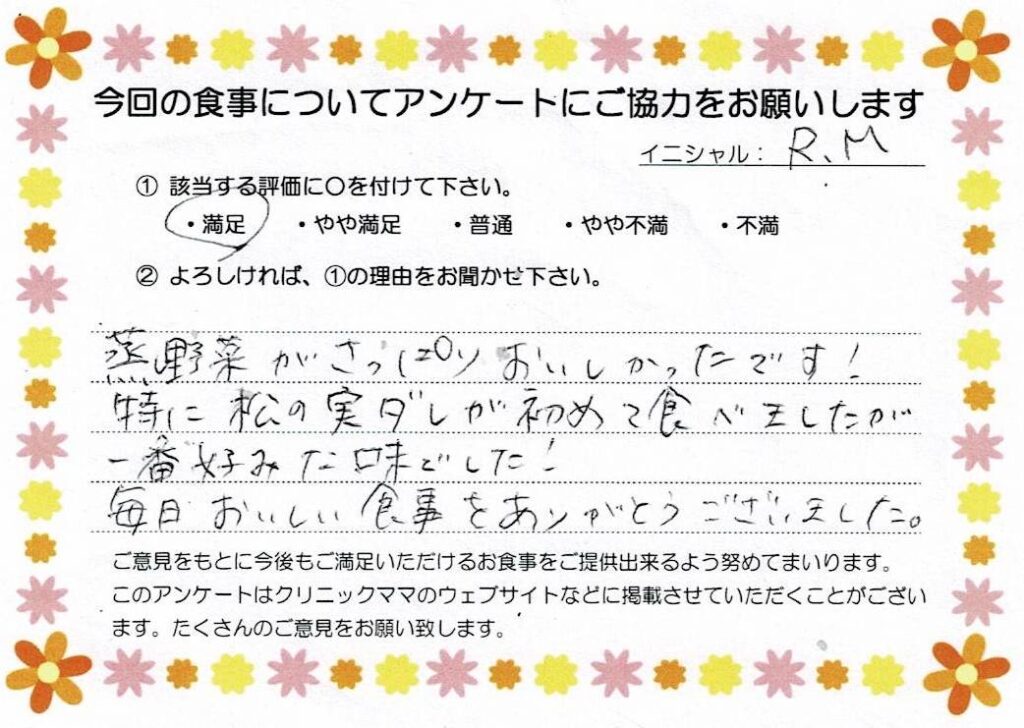 今回の食事についてアンケートにご協力をお願いします
イニシャル： R.M
① 該当する評価に〇を付けて下さい。
・満足 ・やや満足 ・普通 ・やや不満 ・不満
② よろしければ、①の理由をお聞かせ下さい。
蒸し野菜がさっぱりおいしかったです！
特に松の実ダレが初めて食べましたが
一番好みな味でした！
毎日おいしい食事をありがとうございました。
ご意見をもとに今後もご満足いただけるお食事をご提供出来るよう努めてまいります。
このアンケートはクリニックママのウェブサイトなどに掲載させていただくことがござい
ます。たくさんのご意見をお願い致します。